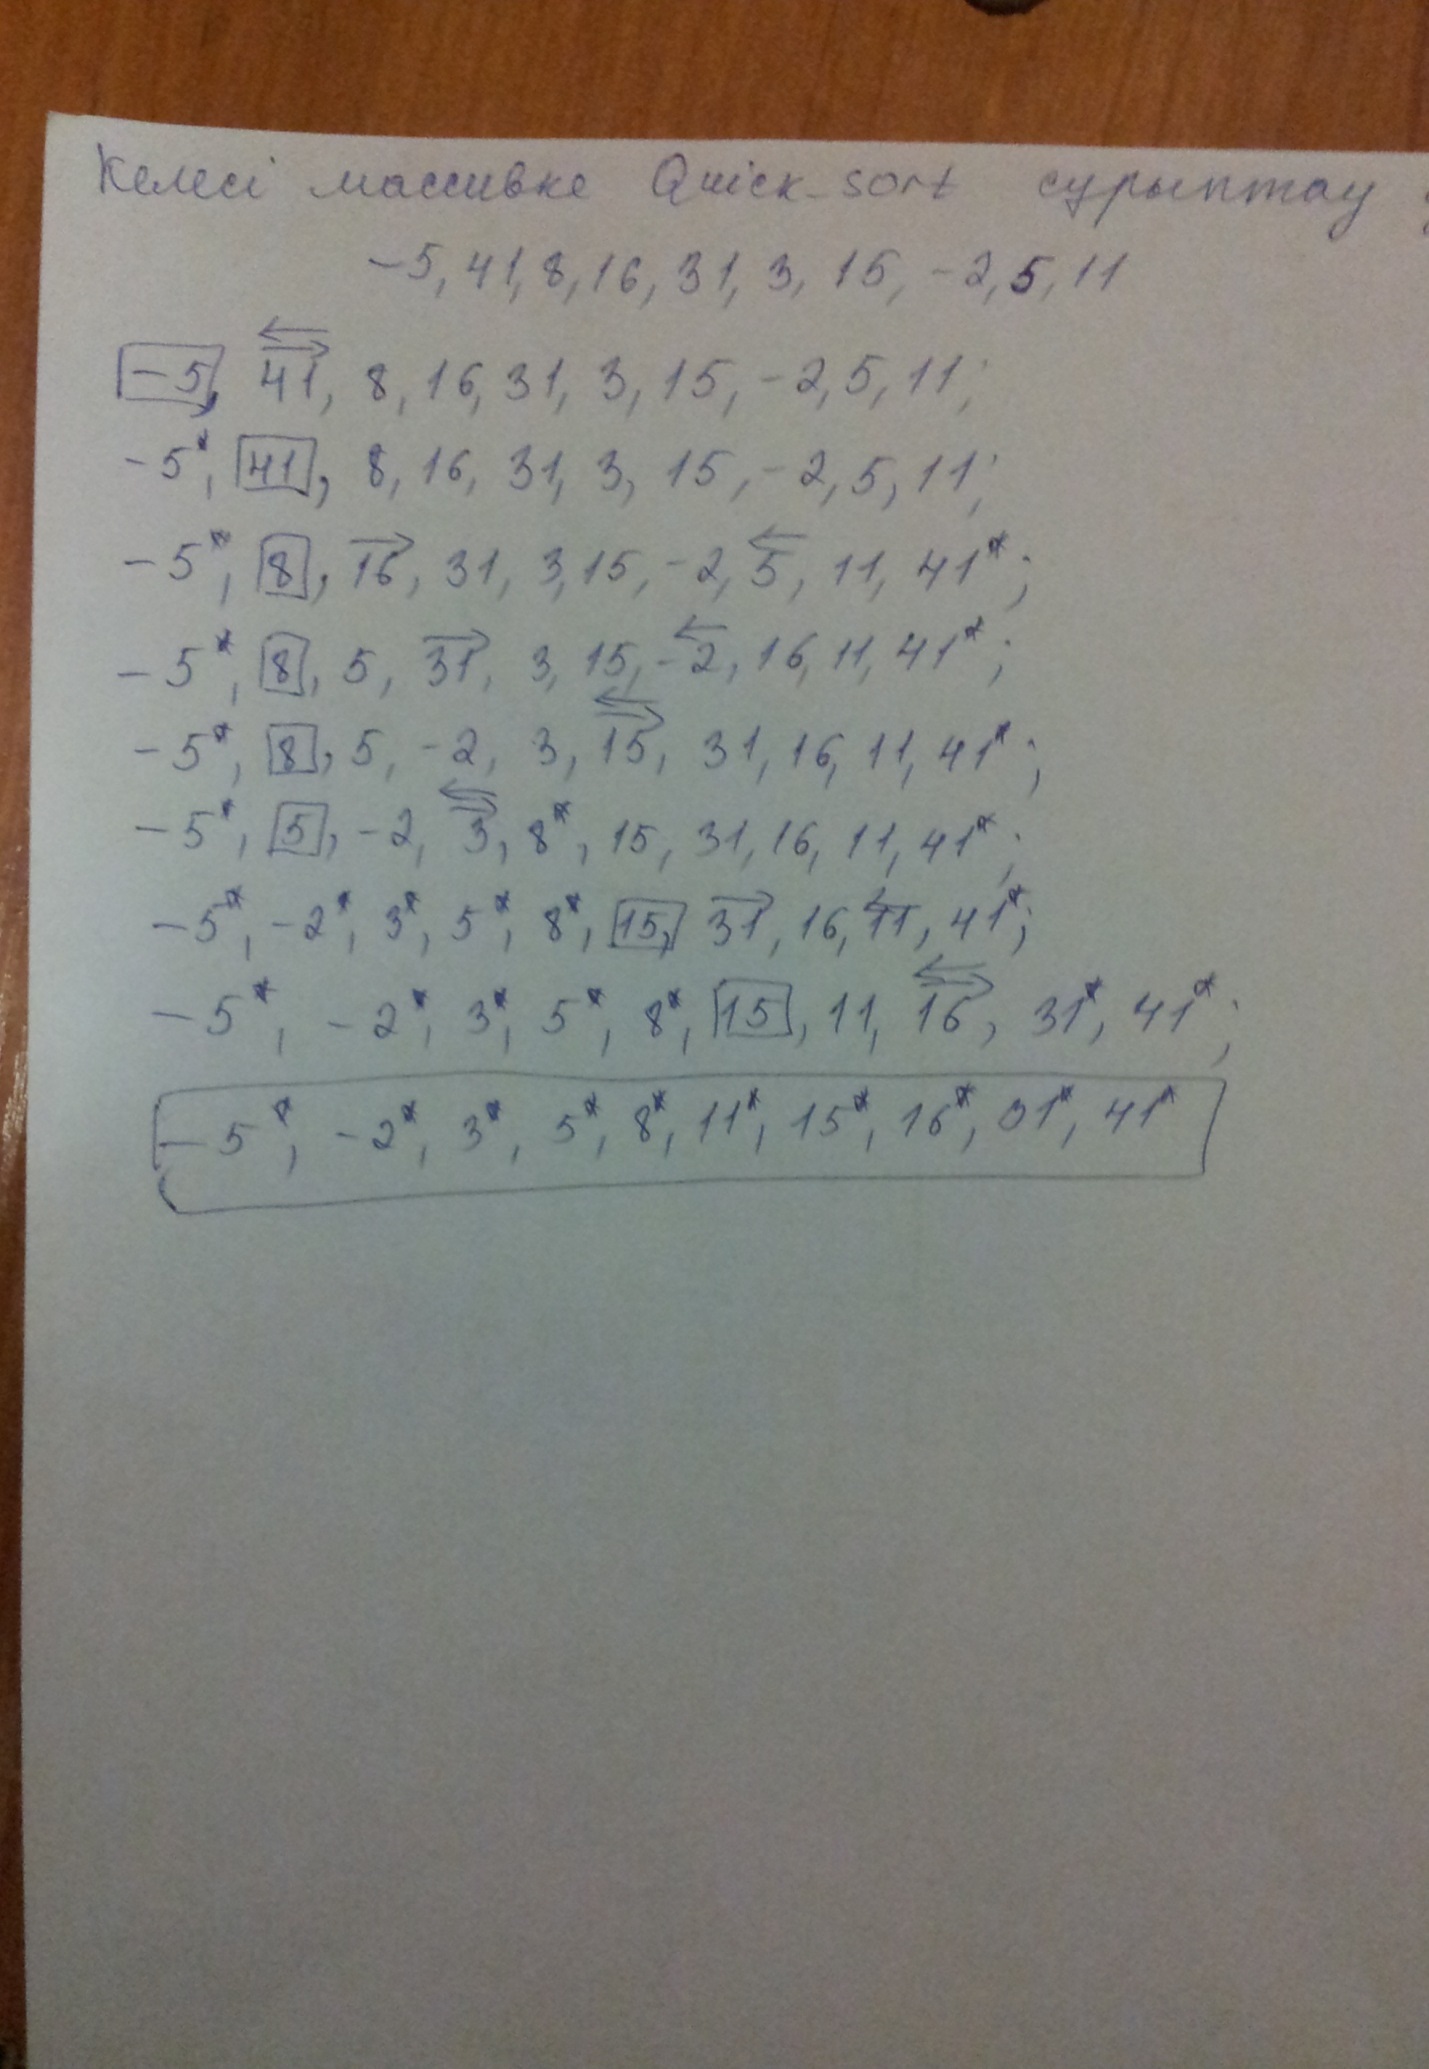 Келесі массивке Quick-sort сұрыптау
-5, 41, 8, 16, 31, 3, 15, -2, 5, 11
-5, 41, 8, 16, 31, 3, 15, -2, 5, 11;
-5*, 41, 8, 16, 31, 3, 15, -2, 5, 11;
-5*, 8, 16, 31, 3, 15, -2, 5, 11, 41*;
-5*, 8, 5, 31, 3, 15, -2, 16, 11, 41*;
-5*, 8, 5, -2, 3, 15, 31, 16, 11, 41*;
-5*, 5, -2, 3, 8*, 15, 31, 16, 11, 41*;
-5*, -2*, 3*, 5*, 8*, 15, 31, 16, 11, 41*;
-5*, -2*, 3*, 5*, 8*, 15, 11, 16, 31*, 41*;
-5*, -2*, 3*, 5*, 8*, 11*, 15*, 16*, 31*, 41*